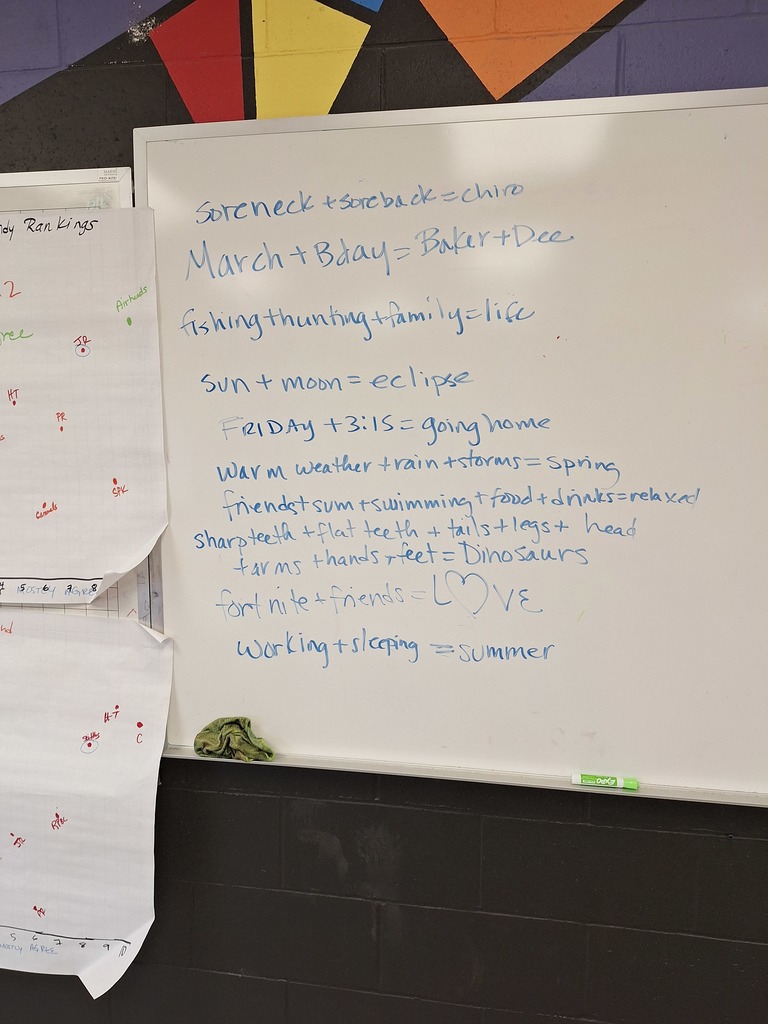 soreneck + soreback = chiro
March + Bday = Baker + Dee
fishing + hunting + family = life
sun + moon = eclipse
FRIDAY + 3:15 = going home
warm weather + rain + storms = spring
friends + sum + swimming + food + drinks = relaxed
sharp teeth + flat teeth + tails + legs + head
+ arms + hands + feet = Dinosaurs
fortnite + friends = L♡VE
working + sleeping = summer
dy Rankings
2
Airheads
ree
JR
HT
PR
SPK
5 6 7 8
MOSTLY AGREE
nd
H-T
C
5 6 7 8 9 10
MOSTLY AGREE
EXPO